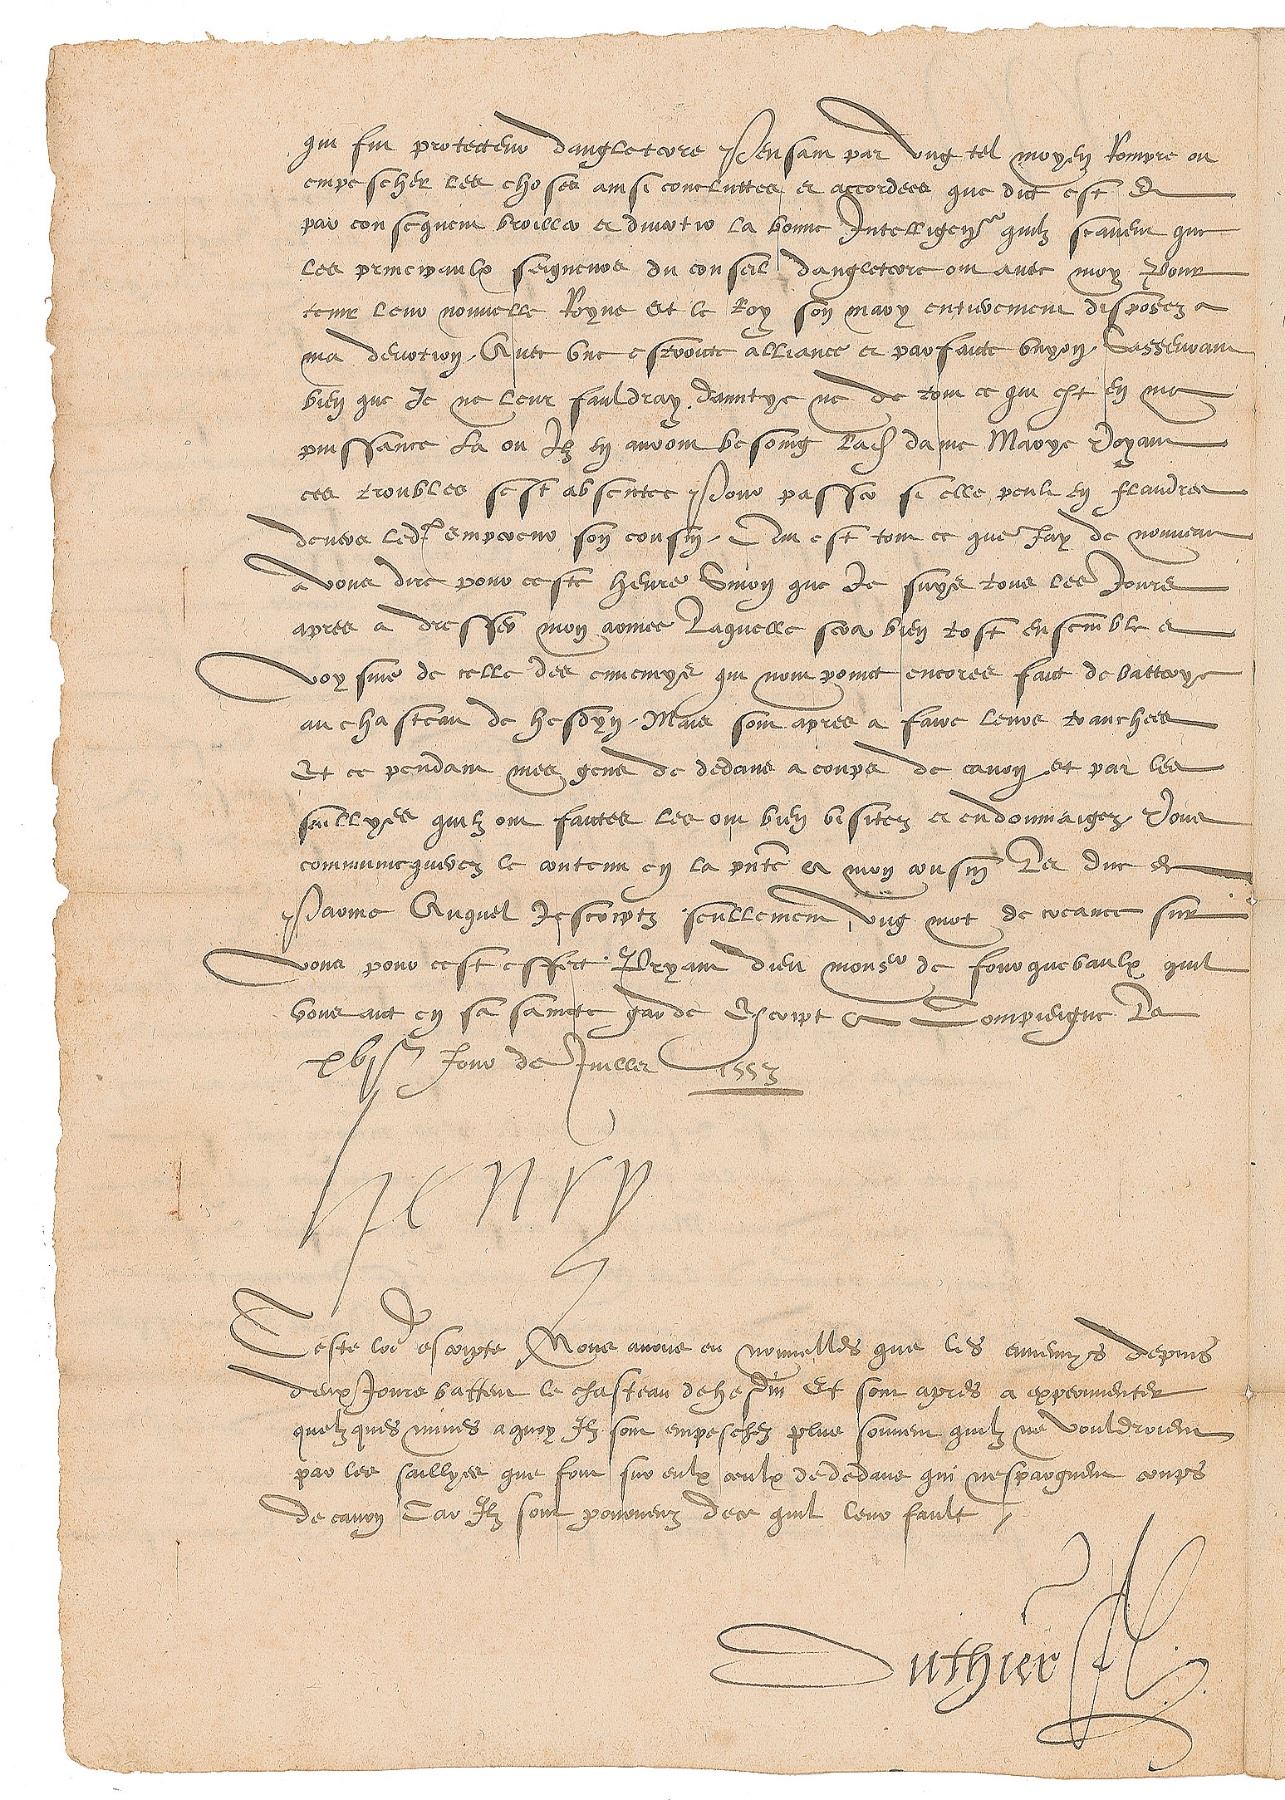 qui fut protecteur dangleterre Pensant par ung tel moyen Rompre ou
empescher les choses ainsi conclutes et accordees que dict est Et
par consequent brouiller et divertir la bonne Intelligence quilz scavent que
les principaulx seigneurs du conseil dangleterre ont avec moy Pour
tenir leur nouvelle Royne et le Roy son mary entierement disposez a
ma devotion. Avec une estroicte alliance et parfaicte unyon. Sasseurant
bien que Je ne leur fauldray damytye ne de tout ce qui est en ma
puissance La ou Ilz en auront besoing Lad dame Marye Voyant
ces troubles sest absentee Pour passer si elle peult en flandres
devers led empereur son cousin. Qui est tout ce que Jay de nouveau
a vous dire pour ceste heure Sinon que Je suys tous les Jours
apres a dresser mon armee Laquelle sera bien tost ensemble et
Voysine de celle des ennemys qui nont point encores faict de batterye
au chasteau de hesdyn. Mais sont apres a faire leurs tranchees
Et ce pendant mes gens de dedans a coups de canon et par les
saillyes quilz ont faictes les ont bien visitez et endommaigez. Vous
communicquerez le contenu en la pnte a mon cousin Le duc de
Parme Auquel Jescriptz seullement ung mot de creance sur
Vous pour cest effect. Pryant dieu monsr de fourquevaulx quil
vous ait en sa saincte garde Escript a Compieigne Le
xvje Jour de Juillet 1553
henry
Ceste lre escripte Nous avons eu nouvelles que les ennemys depuis
deux Jours battent le chasteau de hesdin Et sont apres a experimenter
quelzques mines a quoy Ilz sont empeschez plus souvent quilz ne Vouldroient
par les saillyes que font sur eulx ceulx de dedans qui nespargnent coups
de canon Car Ilz sont pourveuz de ce quil leur fault
Duthier